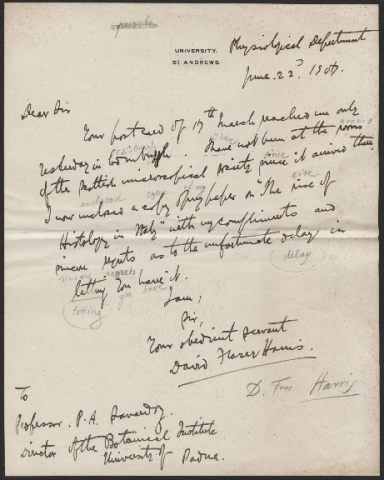 puzzle
UNIVERSITY,
ST ANDREWS
Physiological Department
June 22ᵈ 1907.
Dear Sir
Your postcard of 19th March reached me only
yesterday in Edinburgh. I have not been at the rooms
of the Scottish microscopical society since it arrived there.
I now enclosed a copy of my paper on "The rise of
Histology in Italy" with my compliments and
sincere regrets as to the unfortunate delay in
letting you have it.
(letting) you have
(delay)
I am,
Sir,
Your obedient servant
David Fraser Harris.
D. Harris
To
Professor. P. A. Saccardo,
Director of the Botanical Institute
University of Padua.